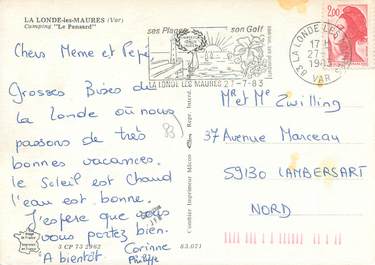 LA LONDE-les-MAURES (Var)
Camping "Le Pansard"
Chers Meme et Pépé
Grosses Bises de
la Londe où nous
passons de très
bonnes vacances.
le Soleil est chaud
l'eau est bonne.
J'espère que vous
vous portez bien.
A bientôt.
Corinne
Philippe
83
3 CP 73 2962
83.071
Combier Imprimeur Mâcon
ses Plages
son Golf
LA LONDE LES MAURES 27-7-83
83 LA LONDE LES
17H
27-
19
VAR
2,00
Mr et Mme Zwilling
37 Avenue Marceau
59130 LAMBERSART
NORD